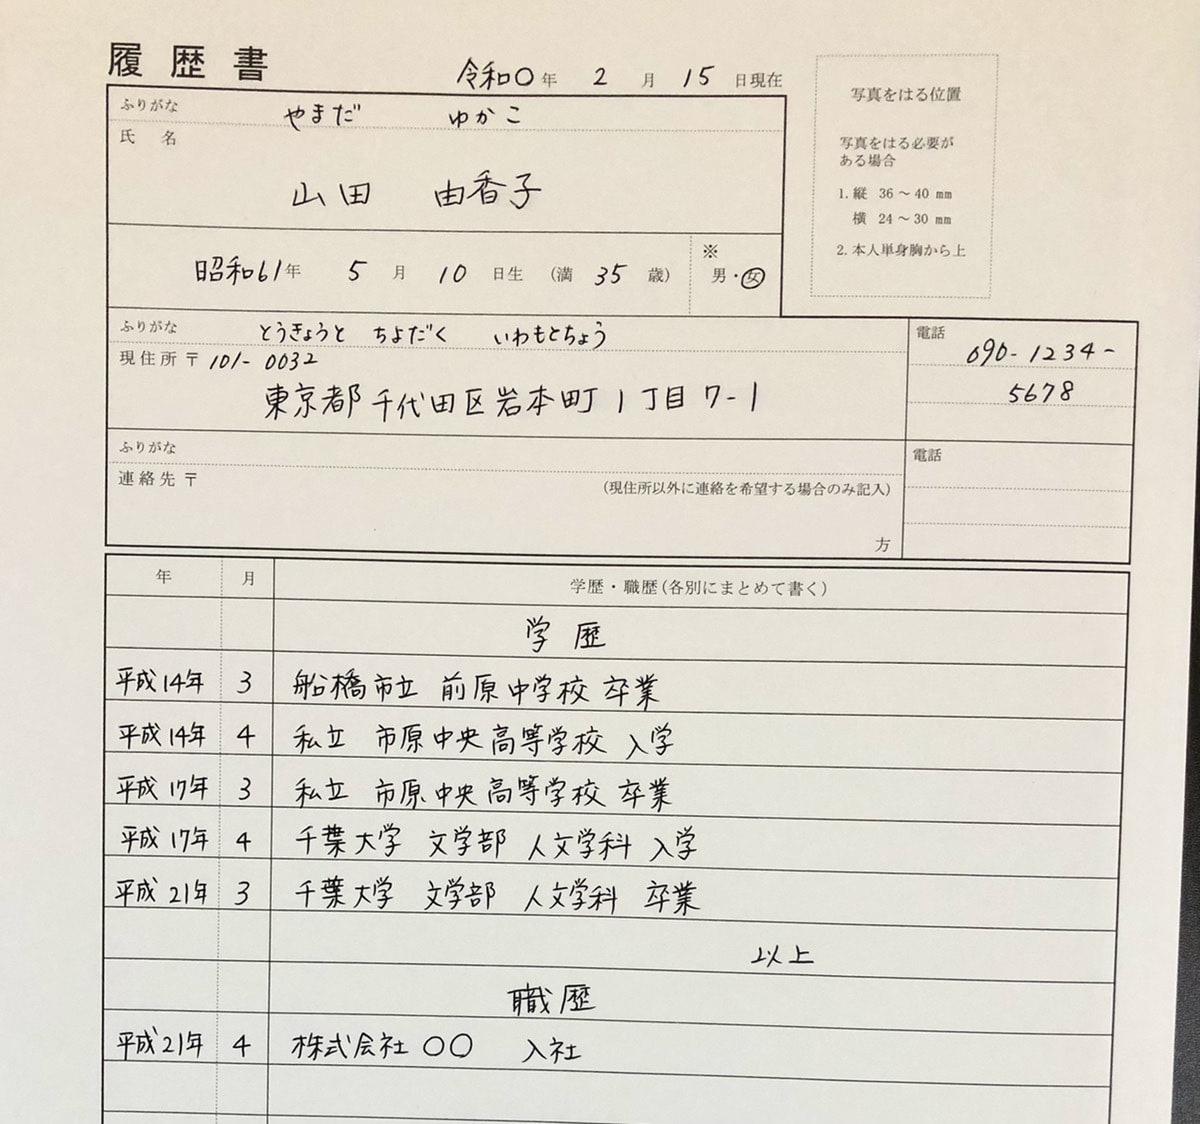 履歴書
令和〇年 2月 15日現在
写真をはる位置
写真をはる必要が
ある場合
1. 縦 36～40 mm
横 24～30 mm
2. 本人単身胸から上
ふりがな やまだ ゆかこ
氏名
山田 由香子
昭和61年 5月 10日生 (満 35歳)
※
男・女
ふりがな とうきょうと ちよだく いわもとちょう
電話
現住所 〒101-0032
090-1234-
東京都千代田区岩本町1丁目7-1
5678
ふりがな
電話
連絡先 〒
(現住所以外に連絡を希望する場合のみ記入)
方
年 月 学歴・職歴(各別にまとめて書く)
学歴
平成14年 3 船橋市立 前原中学校 卒業
平成14年 4 私立 市原中央高等学校 入学
平成17年 3 私立 市原中央高等学校 卒業
平成17年 4 千葉大学 文学部 人文学科 入学
平成21年 3 千葉大学 文学部 人文学科 卒業
以上
職歴
平成21年 4 株式会社〇〇 入社